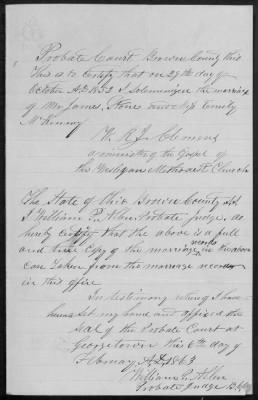 Probate Court Brown County Ohio
This is to Certify that on 27th day of
October A.D. 1852 I Solemnized the marriage
of Mr James Stone and Miss Emily
McKinney
Clemens
a minister of the Gospel of
the Weslyan Methodist Church
The State of Ohio Brown County
I William P. Allen Probate Judge, do
herby certify that the above is a full
and true Copy of the marriage record in the above
case Taken from the marriage record
in this office
In testimony where of I have
hereunto set my hand and affixed the
seal of the Probate Court at
Georgetown this 6th day of
February A.D. 1863
William P. Allen
Probate Judge